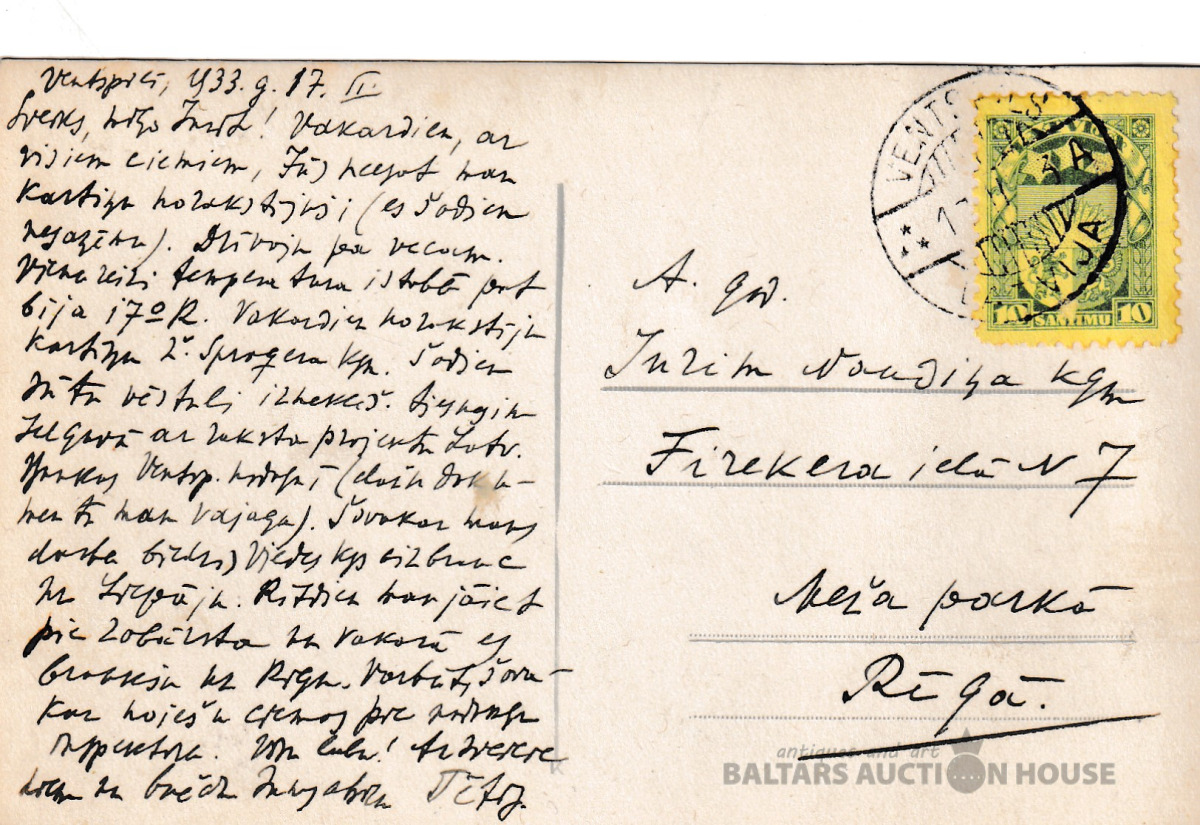 Ventspilī, 1933. g. 17. II.
Sveiks, mīļo Juri! Vakardien, ar
visiem ciemiem, Jūs neesot man
kartiņu norakstījuši (es šodien
nesaņēmu). Dzīvoju pa vecam.
Vienreiz temperatura istabā pat
bija 17º R. Vakardien norakstīju
kartiņu Sproģera kgm. Šodien
vēstuli
Jelgavā ar raksta projektu Latv.
Bankas Ventsp. nodaļai (dažu doku-
mentu man vajaga). Šovakar mans
darba biedrs kgs aizbrauc
uz Liepāju. Rītdien man jāiet
pie zobārsta un vakarā es
braukšu uz Rīgu. Varbūt, šova-
kar noiešu ciemos pie nodokļu
inspektora. Visu labu! Ar sveicie-
niem un Tētiņ.
A. god.
Jurim Naudiņa kgm
Firekera ielā N 7
Meža parkā
Rīgā.
VENTSPILS
LATVIJA
LATVIJA
10 SANTIMU 10
antiques and art
BALTARS AUCTION HOUSE